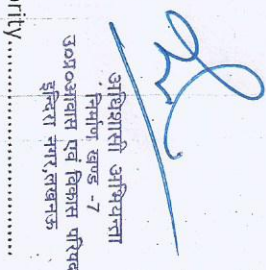 अधिशासी अभियन्ता
निर्माण खण्ड -7
उ०प्र०आवास एवं विकास परिषद
इन्दिरा नगर,लखनऊ
ority..............................